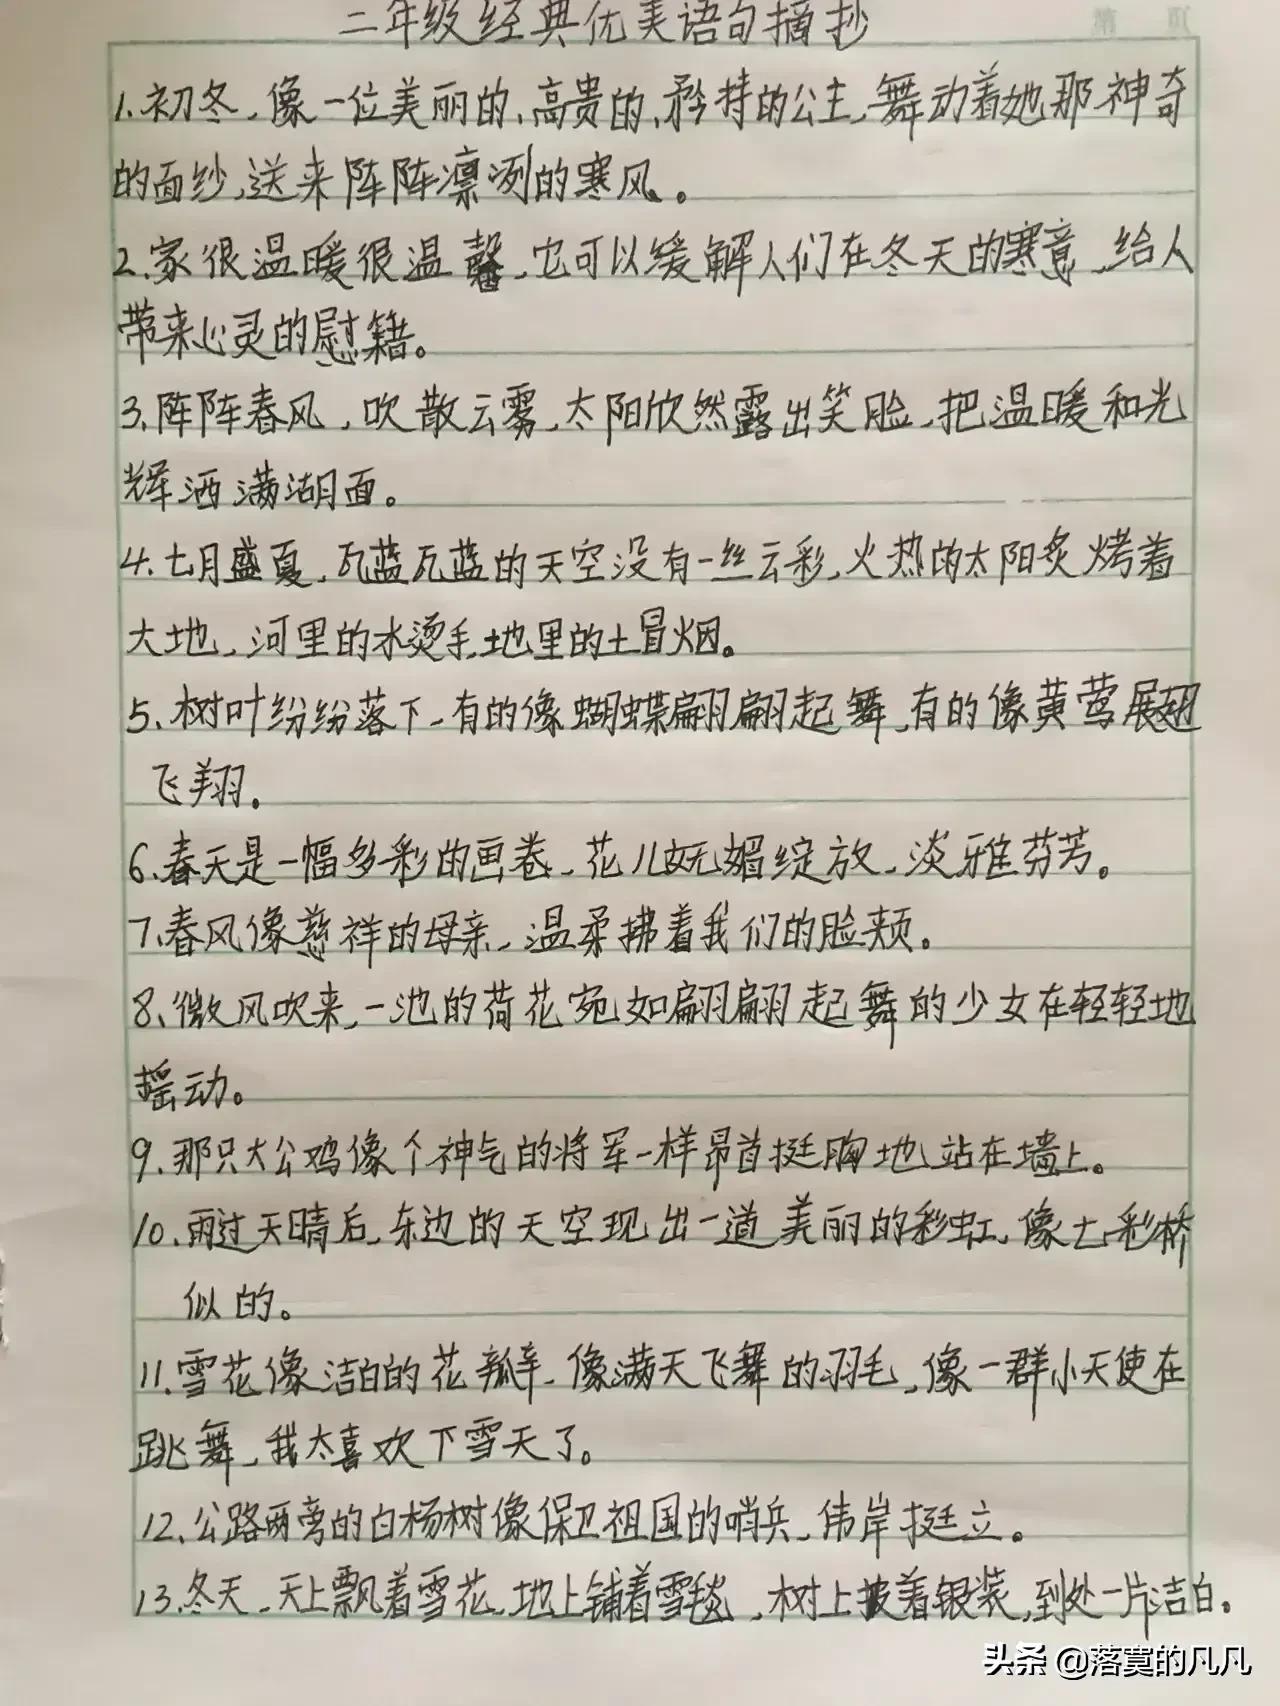 二年级经典优美语句摘抄
1.初冬,像一位美丽的、高贵的、矜持的公主,舞动着她那神奇
的面纱,送来阵阵凛冽的寒风。
2.家很温暖很温馨,它可以缓解人们在冬天的寒意,给人
带来心灵的慰籍。
3.阵阵春风,吹散云雾,太阳欣然露出笑脸,把温暖和光
辉洒满湖面。
4.七月盛夏,瓦蓝瓦蓝的天空没有一丝云彩,火热的太阳炙烤着
大地,河里的水烫手,地里的土冒烟。
5.树叶纷纷落下,有的像蝴蝶翩翩起舞,有的像黄莺展翅
飞翔。
6.春天是一幅多彩的画卷,花儿妩媚绽放,淡雅芬芳。
7.春风像慈祥的母亲,温柔拂着我们的脸颊。
8.微风吹来,一池的荷花宛如翩翩起舞的少女在轻轻地
摇动。
9.那只大公鸡像个神气的将军一样昂首挺胸地站在墙上。
10.雨过天晴后,东边的天空现出一道美丽的彩虹,像七彩桥
似的。
11.雪花像洁白的花瓣,像满天飞舞的羽毛,像一群小天使在
跳舞,我太喜欢下雪天了。
12.公路两旁的白杨树像保卫祖国的哨兵,伟岸挺立。
13.冬天,天上飘着雪花,地上铺着雪毯,树上披着银装,到处一片洁白。
头条 @落寞的凡凡